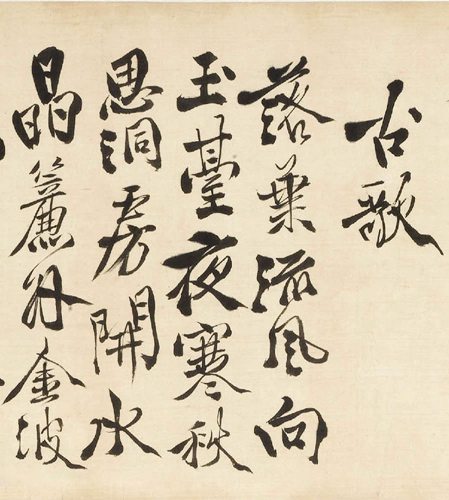 古歌
落葉流風向
玉臺夜寒秋
思洞房開水
晶簾外金波